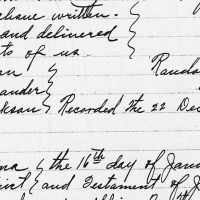 above written.
and delivered
ts of us.
Rando
ander
kson Recorded the 22 Dec
the 16th day of Janu
and Testament of J